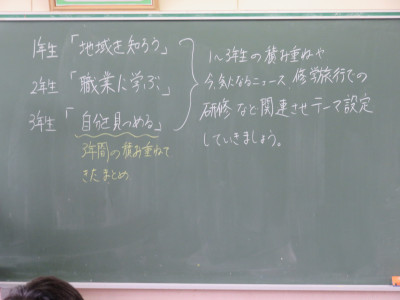 1年生「地域を知ろう」
2年生「職業に学ぶ」
3年生「自分を見つめる」
3年間の積み重ねて
きたまとめ
1~3年生の積み重ねや
今、気になるニュース 修学旅行での
研修など関連させテーマ設定
していきましょう。